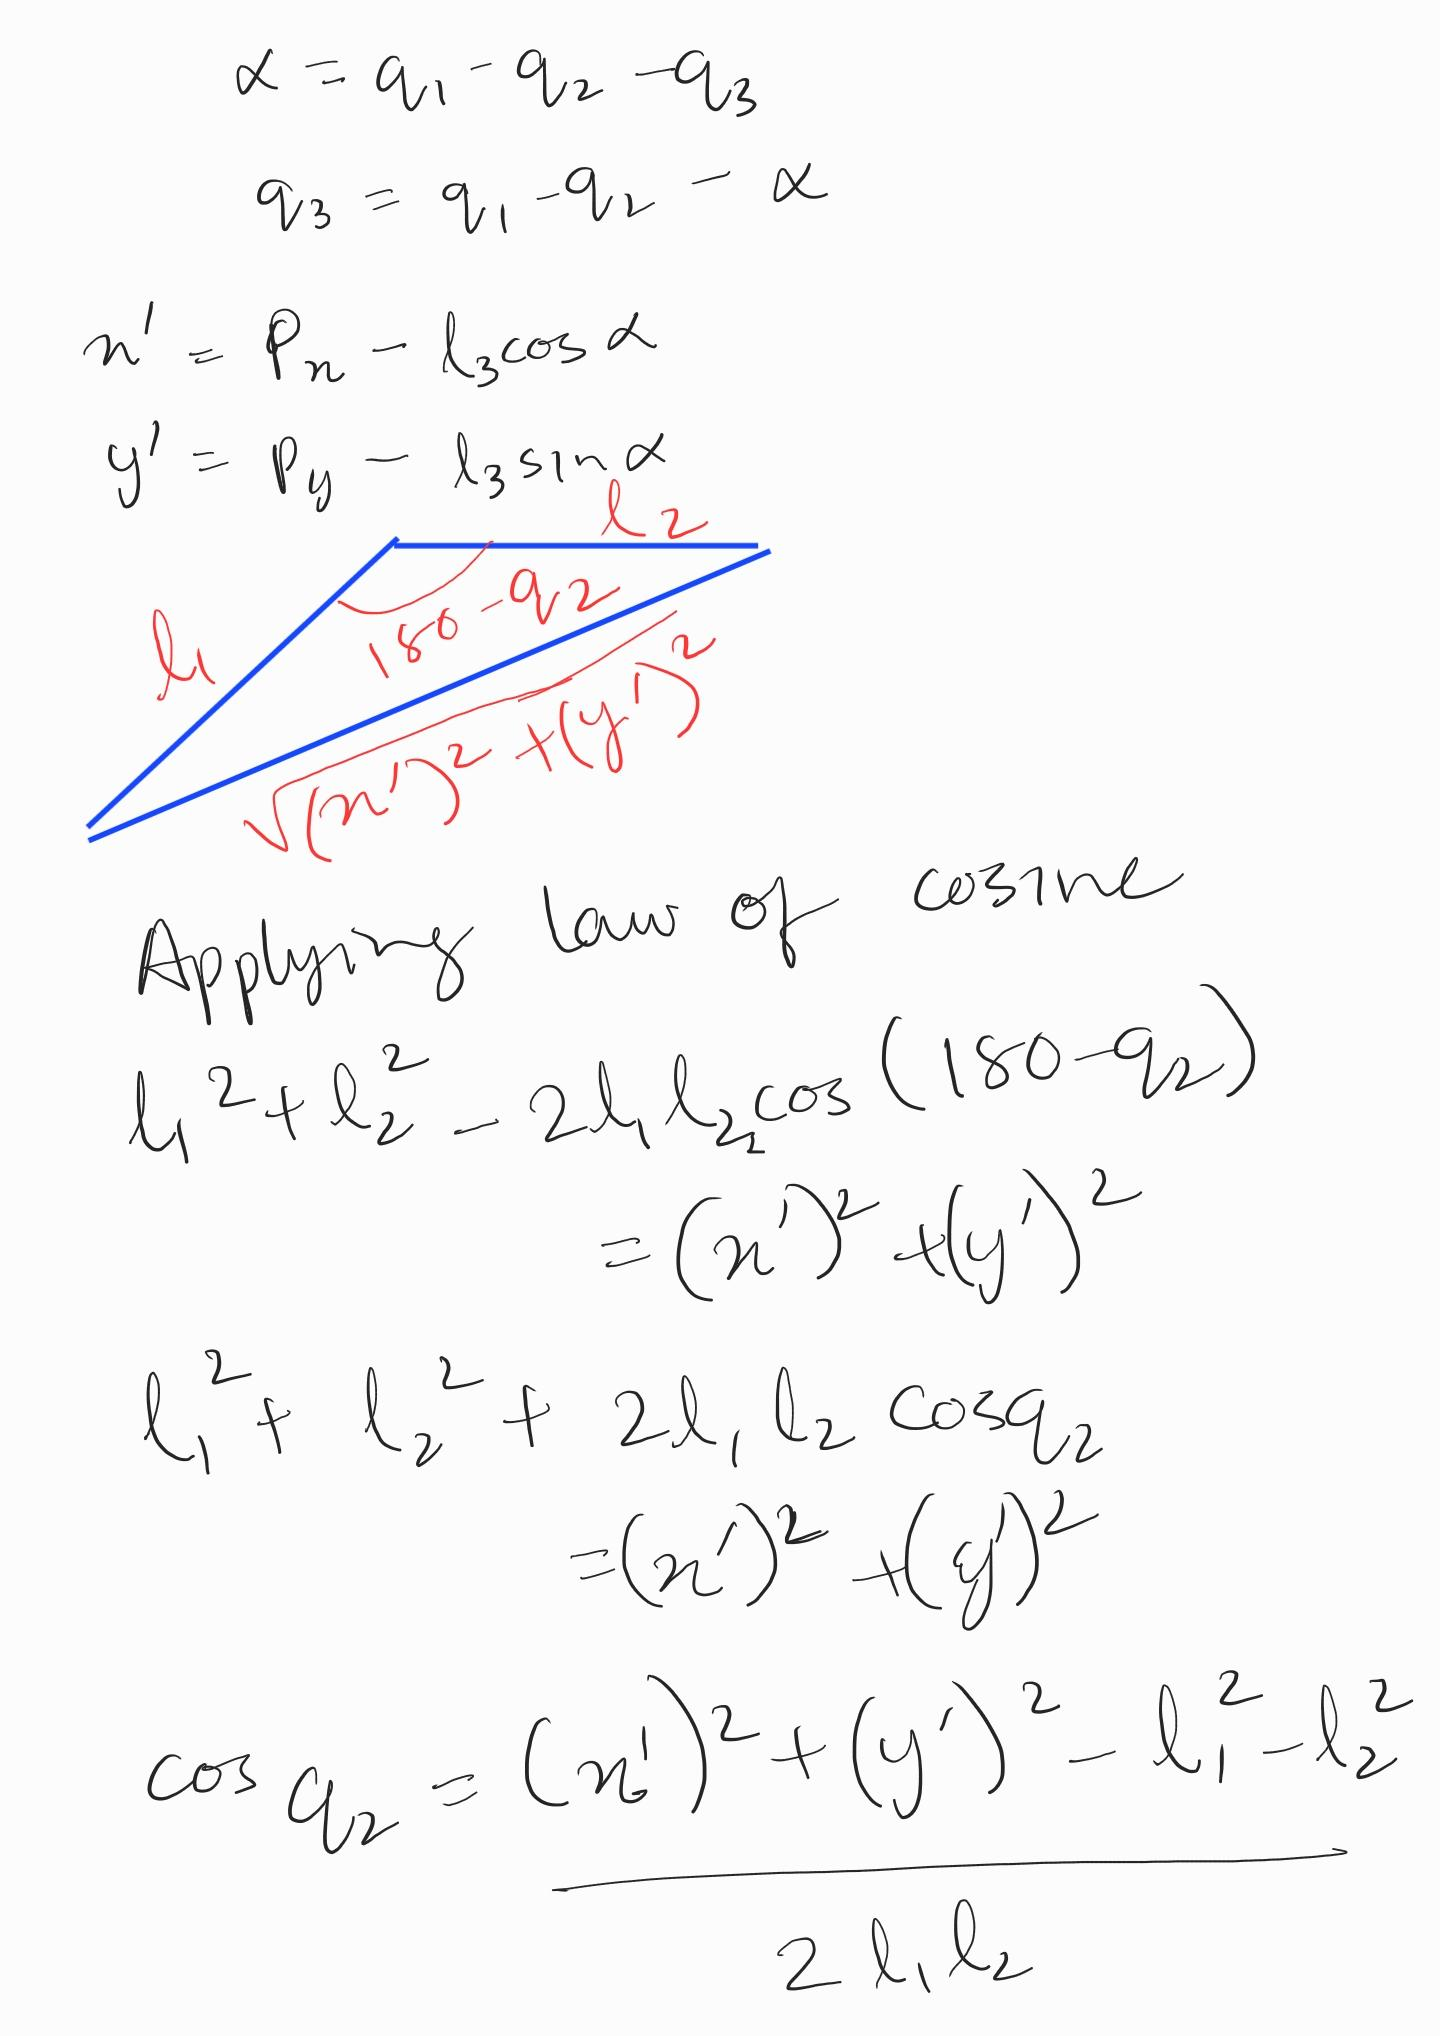 α = q₁ - q₂ - q₃
q₃ = q₁ - q₂ - α
x' = Pₓ - l₃cos α
y' = P_y - l₃sin α
l₂
l₁
180-q₂
√(x')² + (y')²
Applying law of cosine
l₁² + l₂² - 2l₁l₂cos(180-q₂)
= (x')² + (y')²
l₁² + l₂² + 2l₁l₂ cosq₂
= (x')² + (y')²
cos q₂ = (x')² + (y')² - l₁² - l₂²
2 l₁l₂